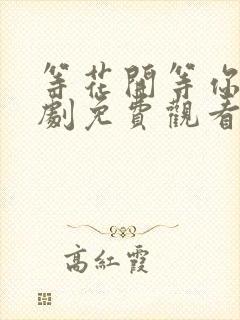 等花開等你
劇免費觀看
高紅霞